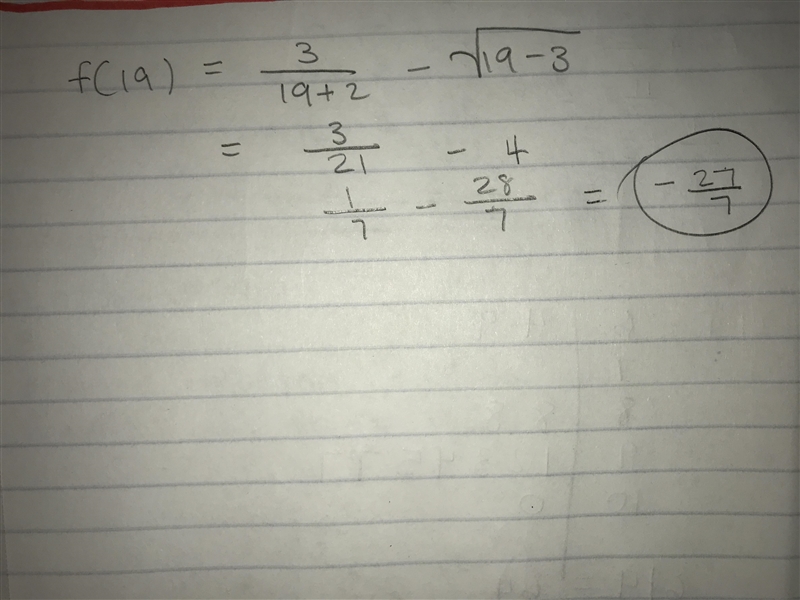 f(19) = 3/(19+2) - √(19-3)
= 3/21 - 4
1/7 - 28/7 = - 27/7